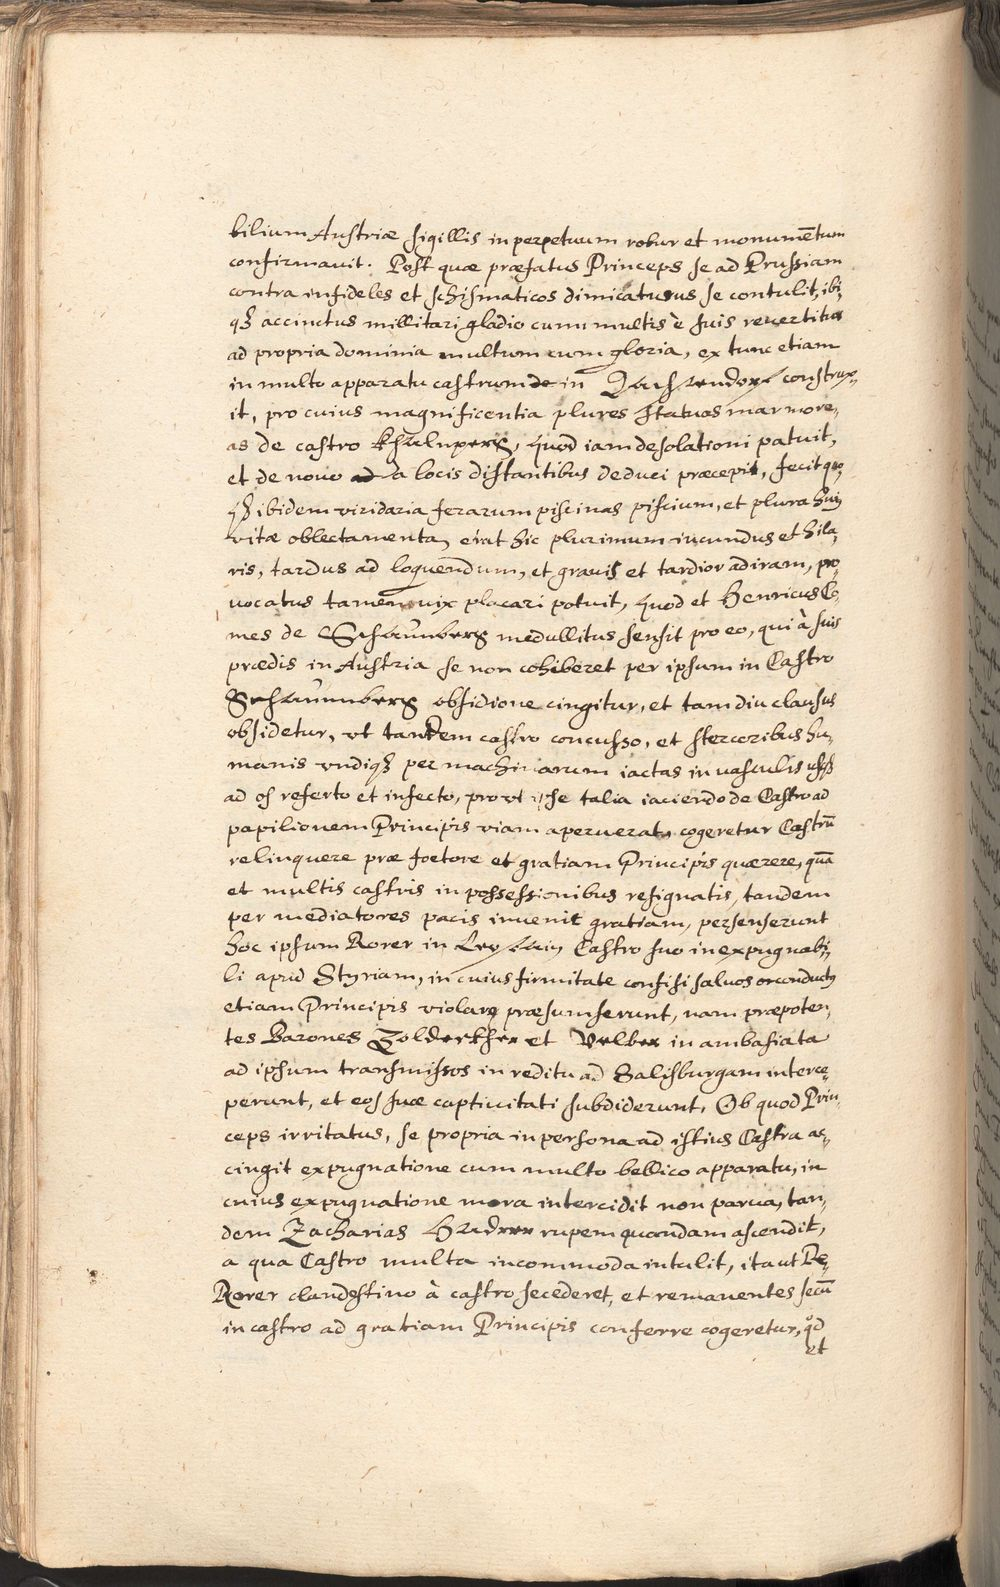 bilium Austriæ sigillis in perpetuum robur et monumẽtum
confirmauit. Post quæ præfatus Princeps se ad Prussiam
contra infideles et schismaticos dimicaturus se contulit, ibi,
qȝ accinctus millitari gladio cum multis è suis reuertitur
ad propria dominia multum cum gloria, ex tunc etiam
in multo apparatu castrum de in Lachsendorf construx,
it, pro cuius magnificentia plures statuas marmore,
as de castro Khalnperg, quod iam desolationi patuit,
et de nouo a locis distantibus deduci præcepit, fecit quo,
qȝ ibidem viridaria ferarum piscinas piscium, et plura huiꝰ
vitæ oblectamenta, erat hic plurimum iucundus et hila,
ris, tardus ad loquendum, et grauis et tardior ad iram, pro,
uocatus tamen vix placari potuit, quod et Henricus Co,
mes de Schaunberg medullitus sensit pro eo, qui à suis
prædis in Austria se non cohiberet per ipsum in Castro
Schaunnberg obsidione cingitur, et tam diu clausus
obsidetur, vt tandem castro concusso, et stercoribus hu,
manis vndiqȝ per machinarum iactas in vasculis usqȝ
ad os referto et infecto, prout ipse talia iaciendo de Castro ad
papilionem Principis viam aperuerat, cogeretur Castrũ
relinquere præ foetore et gratiam Principis quærere, quã
et multis castris in possessionibus resignatis, tandem
per mediatores pacis inuenit gratiam, persenserunt
hoc ipsum Rorer in Castro suo inexpugnabi,
li apud Styriam, in cuius firmitate confisi saluos conductꝰ
etiam Principis violare præsumserunt, nam præpoten,
tes Barones Zolderkher et Velber in ambasiata
ad ipsum transmissos in reditu ad Salisburgam interce,
perunt, et eos suæ captiuitati subdiderunt, Ob quod Prin,
ceps irritatus, se propria in persona ad istius Castra ac,
cingit expugnatione cum multo bellico apparatu, in
cuius expugnatione mora intercidit non parua, tan,
dem Zacharias Hadrer rupem quandam ascendit,
a qua Castro multa incommoda intulit, ita ut Re,
Rorer clandestino à castro secederet, et remanentes secũ
in castro ad gratiam Principis conferre cogeretur, qd
et